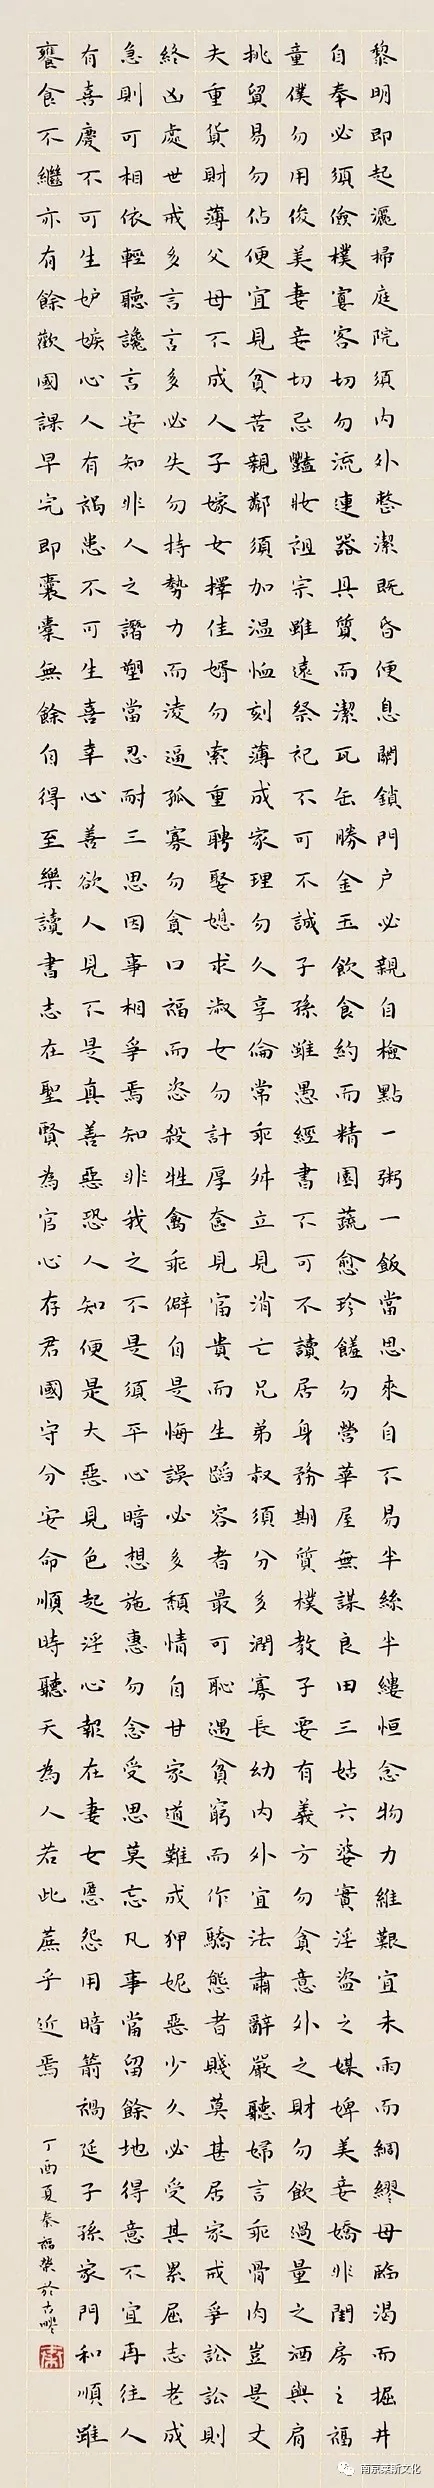 黎明即起灑掃庭院須內外整潔既昏便息關鎖門戶必親自檢點一粥一飯當思來自不易半絲半縷恒念物力維艱宜未雨而綢繆毋臨渴而掘井
自奉必須儉樸宴客切勿流連器具質而潔瓦缶勝金玉飲食約而精園蔬愈珍饈勿營華屋無謀良田三姑六婆實淫盜之媒婢美妾嬌非閨房之福
童僕勿用俊美妻妾切忌豔妝祖宗雖遠祭祀不可不誠子孫雖愚經書不可不讀居身務期質樸教子要有義方勿貪意外之財勿飲過量之酒與肩
挑貿易勿佔便宜見貧苦親鄰須加溫恤刻薄成家理勿久享倫常乖舛立見消亡兄弟叔須分多潤寡長幼內外宜法肅辭嚴聽婦言乖骨肉豈是丈
夫重貨財薄父母不成人子嫁女擇佳婿勿索重聘娶媳求淑女勿計厚奩見富貴而生蹈容者最可恥遇貧窮而作驕態者賤莫甚居家戒爭訟訟則
終凶處世戒多言言多必失勿持勢力而淩逼孤寡勿貪口福而恣殺牲禽乖僻自是悔誤必多頹情自甘家道難成狎妮惡少久必受其累屈志老成
急則可相依輕聽讒言安知非人之譖塑當忍耐三思因事相爭焉知非我之不是須平心暗想施惠勿念受思莫忘凡事當留餘地得意不宜再往人
有喜慶不可生妒嫉心人有禍患不可生喜幸心善欲人見不是真善惡恐人知便是大惡見色起淫心報在妻女惡怨用暗箭禍延子孫家門和順雖
饔食不繼亦有餘歡國課早完即囊橐無餘自得至樂讀書志在聖賢為官心存君國守分安命順時聽天為人若此庶乎近焉
丁酉夏秦福榮於古
南京莱斯文化